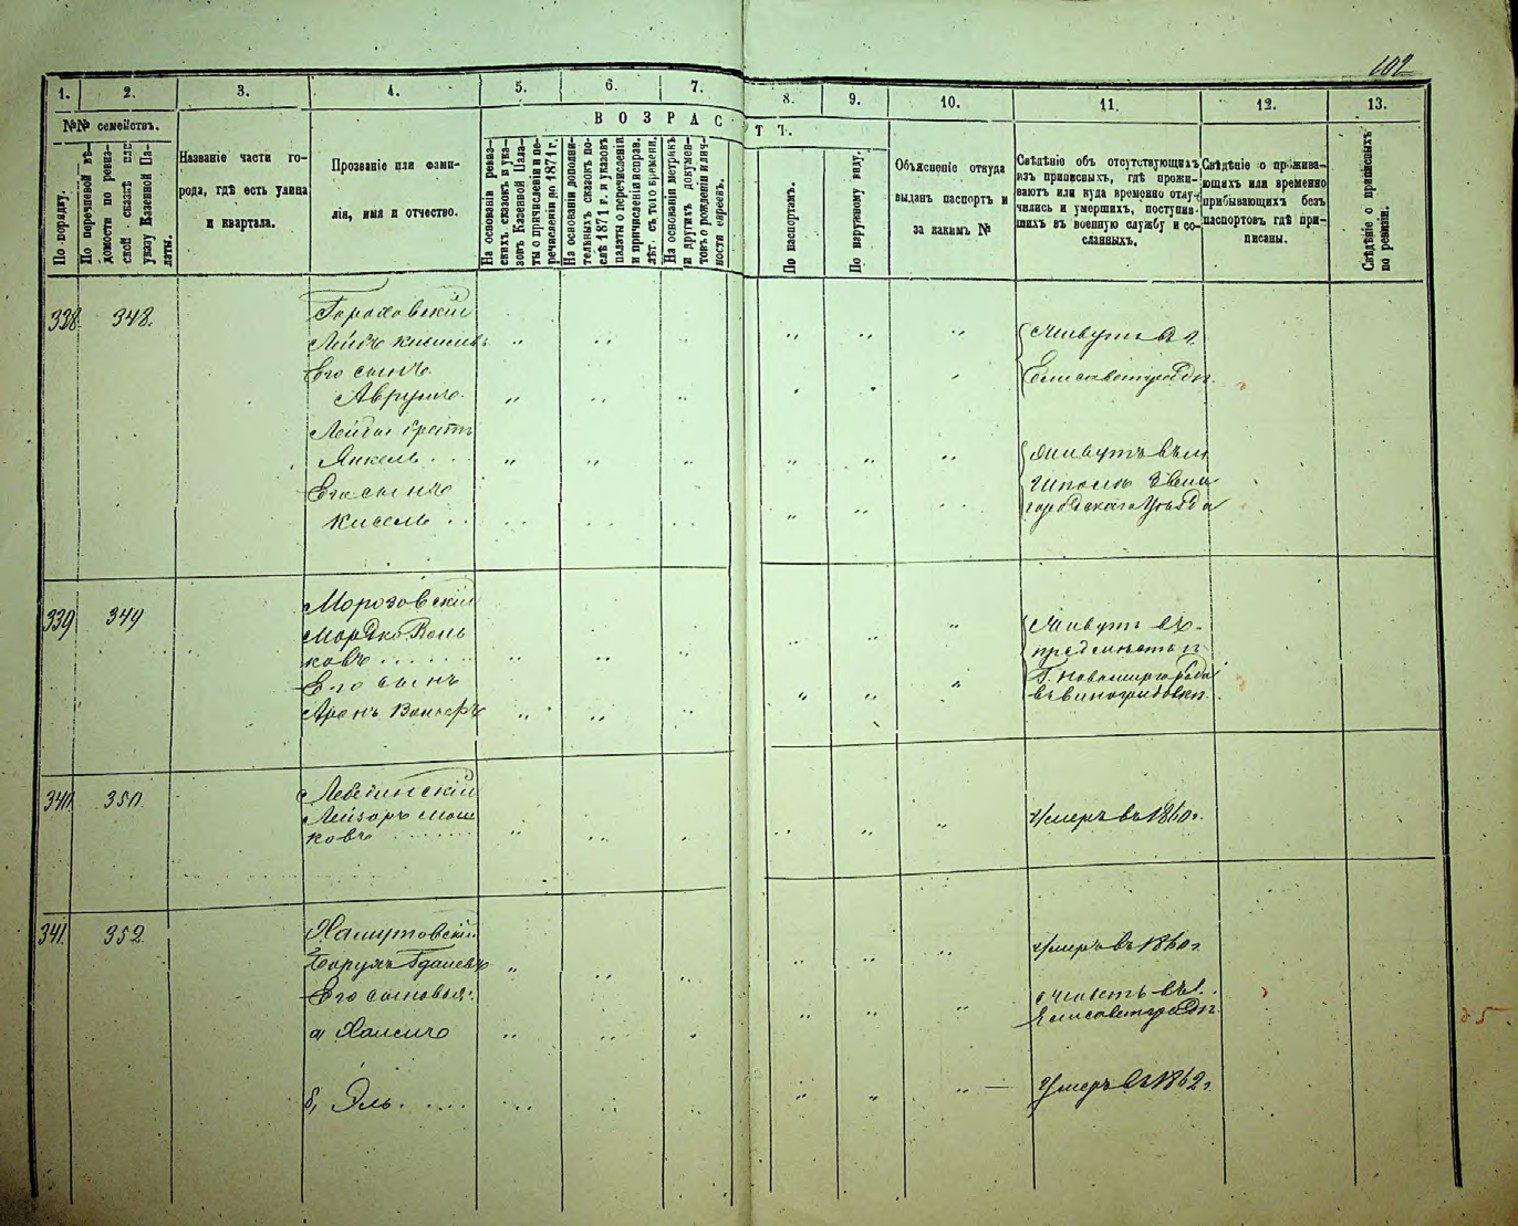 102
1.
2.
3.
4.
5.
6.
7.
8.
9.
10.
11.
12.
13.
№№ семействъ.
По порядку.
По перечневой вѣ-
домости по ревиз-
ской сказкѣ или
указу Казенной Па-
латы.
Названіе части го-
рода, гдѣ есть улица
и квартала.
Прозваніе или фами-
лія, имя и отчество.
ВОЗРАСТЪ.
На основаніи ревиз-
скихъ сказокъ и ука-
зовъ Казенной Пала-
ты о причисленіи и пе-
речисленіи до 1871 г.
На основаніи дополни-
тельныхъ сказокъ по-
слѣ 1871 г. и указовъ
палаты о перечисленіи
и причисленіи исправ.
лѣт. съ того времени.
На основаніи метрикъ
и другихъ докумен-
товъ о рожденіи и лич-
ности евреевъ.
По паспортамъ.
По наружному виду.
Объясненіе откуда
выданъ паспортъ и
за какимъ №
Свѣдѣніе объ отсутствующихъ
изъ приписныхъ, гдѣ прожи-
ваютъ или куда временно отлу-
чились и умершихъ, поступив-
шихъ въ военную службу и со-
сланныхъ.
Свѣдѣніе о прожива-
ющихъ или временно
прибывающихъ безъ
паспортовъ гдѣ при-
писаны.
Свѣдѣніе о приписныхъ
по ревизіи.
338. 348.
Гороховскій
Лейбъ Киселевъ
Живутъ въ г.
Его сынъ
Елисаветградѣ.
Аврумъ.
Лейбы братъ
Янкель . . .
Живутъ въ м.
Его сынъ
Шполѣ Звени
Кисель . .
городскаго Уѣзда
339 349
Морозовскій
Мордко Воль
Живутъ въ
ковъ . . . . . .
предмѣстьи
Его сынъ
Г. Новомиргорода
въ Виноградовкѣ.
Аронъ Вольфъ
340. 350.
Лебединскій
Лейзоръ Мош
Умеръ въ 1860 г.
ковъ . . . . . .
341. 352.
Хашутовскій
Умеръ въ 1860 г.
Борухъ Гдалевъ
Его сыновья:
Живетъ въ г.
Елисаветградѣ.
а, Хаимъ
б, Эль. . . . .
Умеръ въ 1862 г.